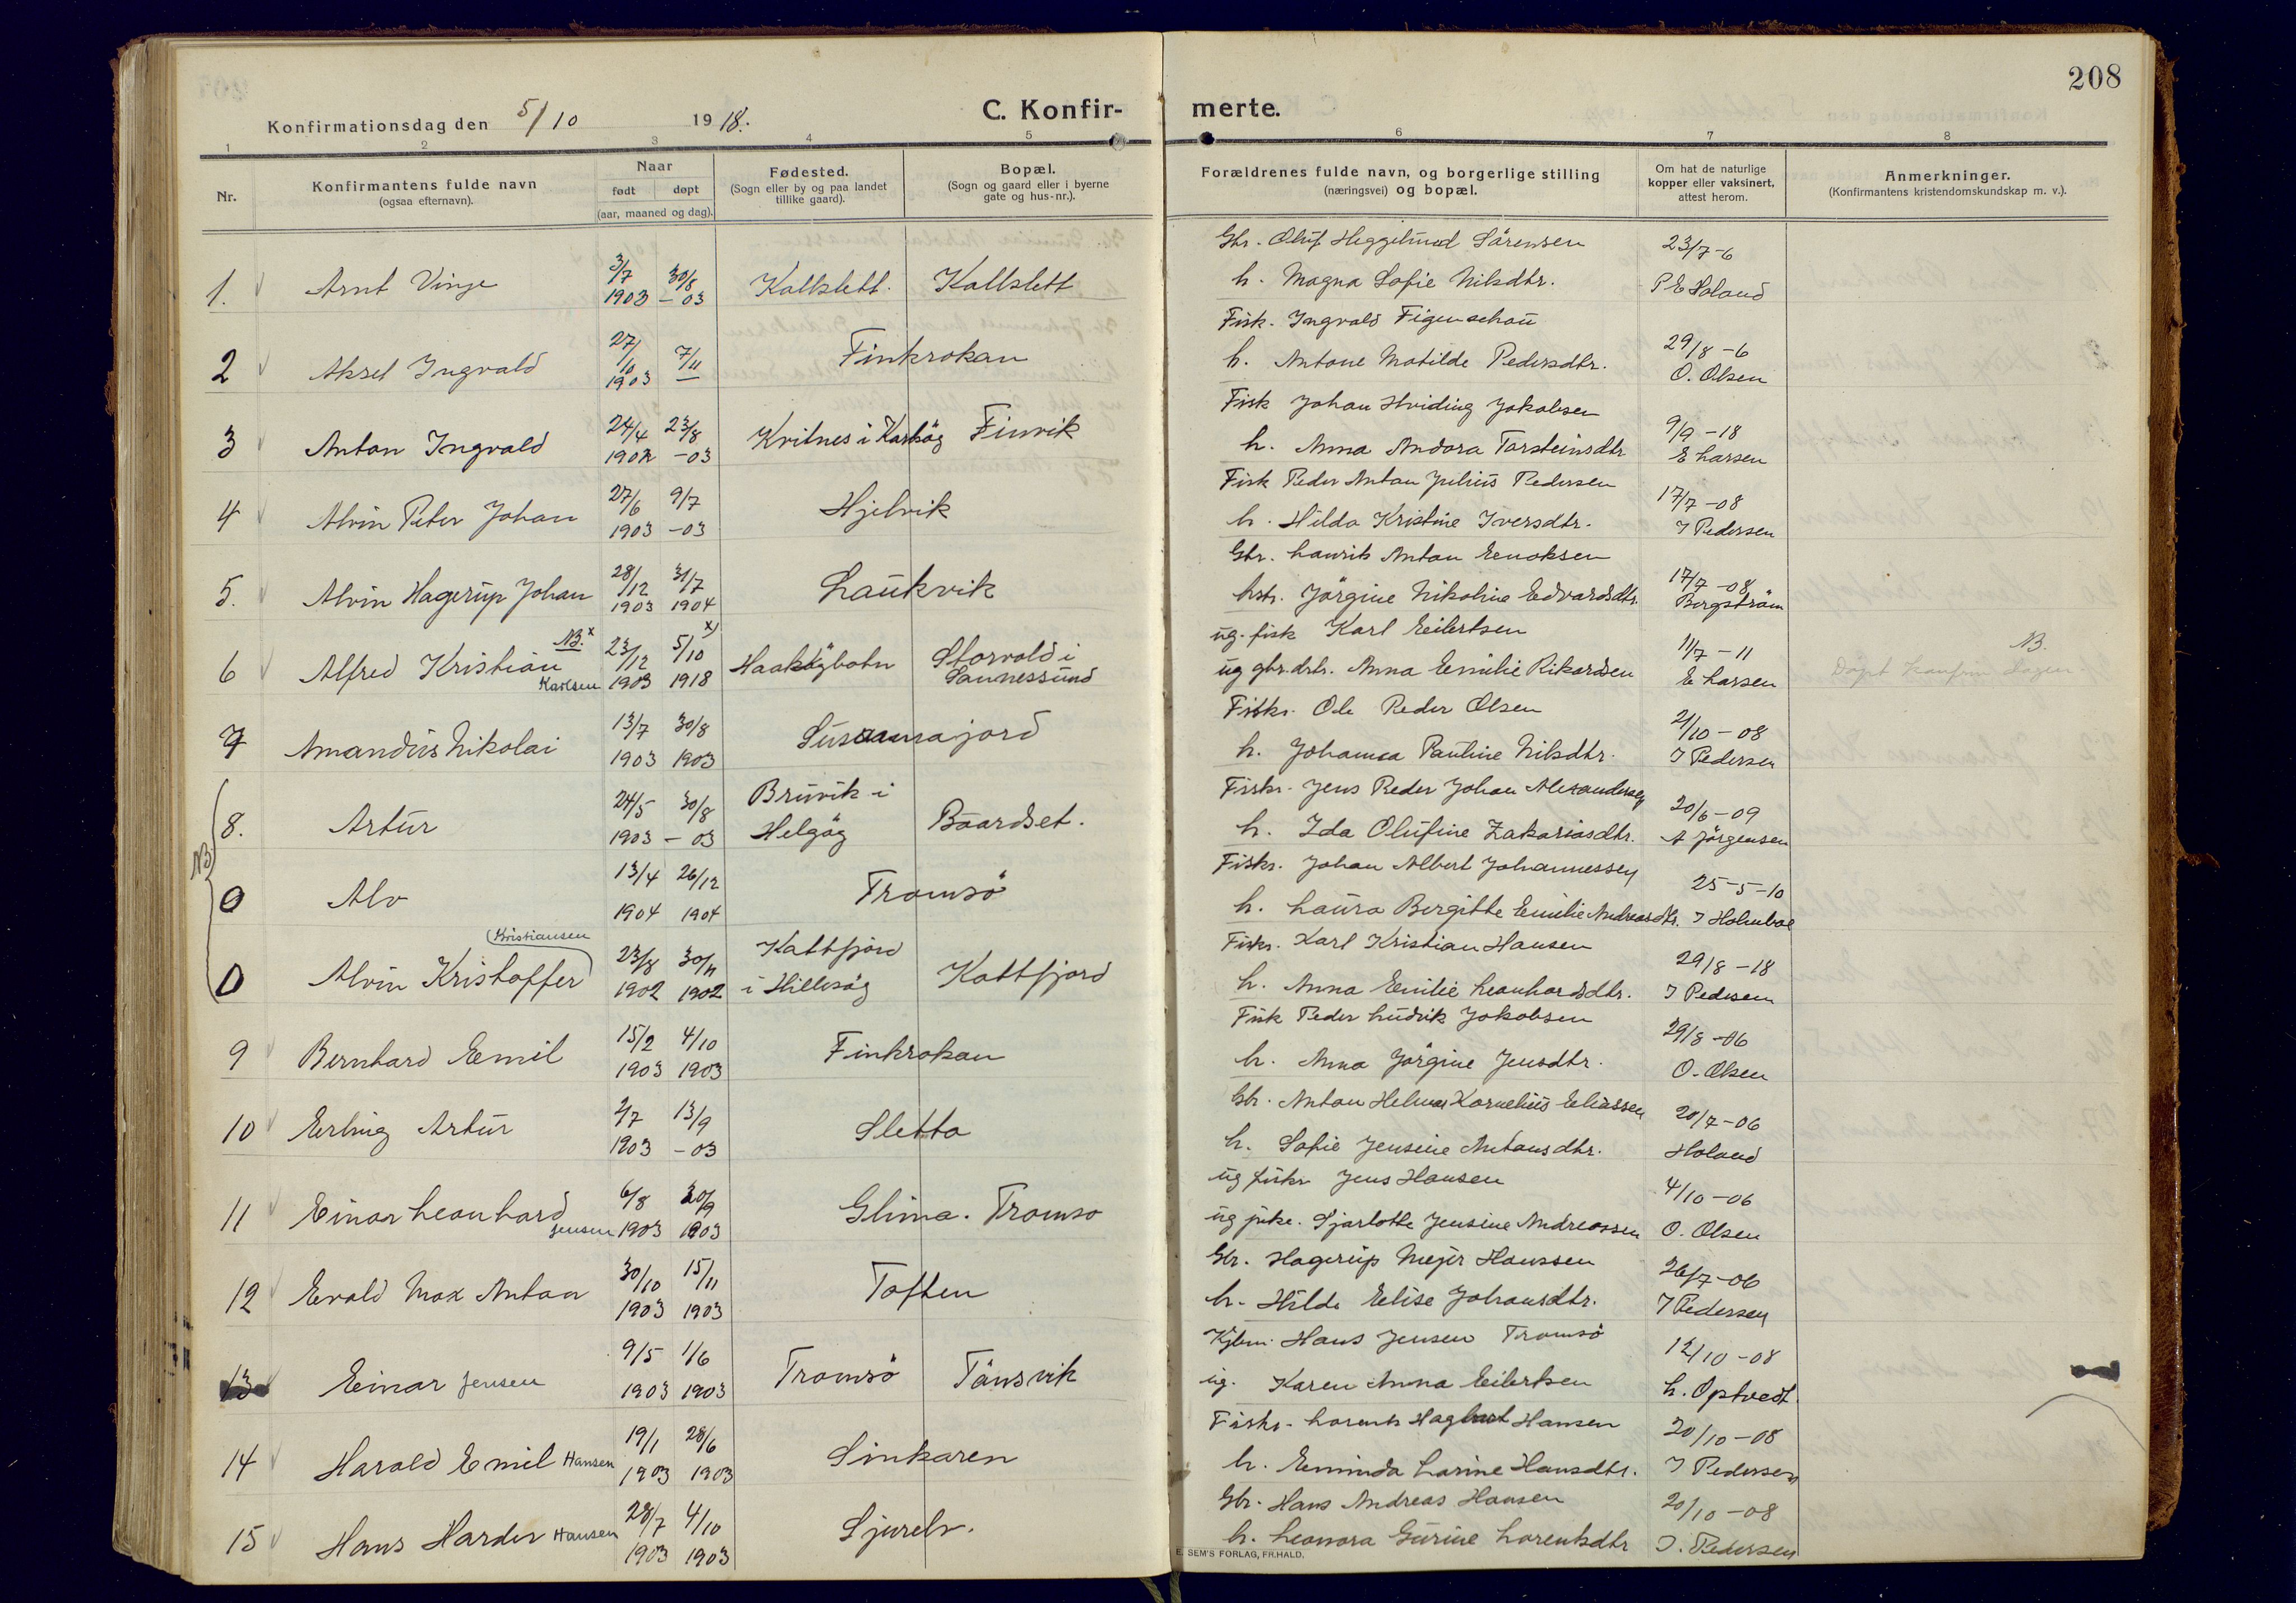 208
Konfirmationsdag den 5/10 1918.
C. Konfir-
merte.
1 2 3 4 5 6 7 8
Nr.
Konfirmantens fulde navn
(ogsaa efternavn).
Naar
født døpt
(aar, maaned og dag).
Fødested.
(Sogn eller by og paa landet
tillike gaard).
Bopæl.
(Sogn og gaard eller i byerne
gate og hus-nr.).
Forældrenes fulde navn, og borgerlige stilling
(næringsvei) og bopæl.
Om hat de naturlige
kopper eller vaksinert,
attest herom.
Anmerkninger.
(Konfirmantens kristendomskundskap m. v.).
1. Arnt Vinje 3/7 1903 30/8 -03 Kalkslett. Kalkslett
Gbr. Oluf Heggelund Sörensen 23/7-6
h. Magna Sofie Nilsdtr. P E Holand
2 Aksel Ingvald 27/10 1903 7/11 — Finkrokan
Fisk. Ingvald Figenschau 29/8-6
h. Antone Matilde Pedersdtr. O. Olsen
3 Anton Ingvald 24/4 1902 23/8 -03 Kvitnes i Karlsög Finvik
Fisk Johan Hviding Jakobsen 9/9-18
h. Anna Andora Torsteinsdtr E Larsen
4 Alvin Peter Johan 27/6 1903 9/7 -03 Hjelvik
Fisk Peder Anton Julius Pedersen 17/7-08
h. Hilda Kristine Iversdtr. I Pedersen
5. Alvin Hagerup Johan 28/12 1903 31/7 1904 Laukvik
Gbr. Laurits Anton Enoksen 17/7-08
hstr. Jörgine Nikoline Edvardsdtr. Bergström
6 Alfred Kristian Karlsen NB. x 23/12 1903 5/10 x) 1918 Haaksögbotn Storvold i Sannessund
ug. fisk Karl Eilertsen 11/7-11 NB.
ug gbr.dtr. Anna Emilie Rikardsen E Larsen Döpt
7 Amandus Nikolai 13/7 1903 30/8 1903 Susannajord
Fiskr. Ole Peder Olsen 2/10-08
h. Johanna Pauline Nilsdtr. I Pedersen
NB.
8. Artur 24/5 1903 30/8 -03 Bruvik i Helgög Baardset.
Fiskr. Jens Peder Johan Alexandersen 20/6-09
h. Ida Olufine Zakariasdtr. A Jörgensen
0 Alv 13/4 1904 26/12 1904 Tromsö
Fiskr. Johan Albert Johannessen 25-5-10
h. Laura Bergitte Emilie Andreasdtr. I Holmboe
0 Alvin Kristoffer (Kristiansen) 23/8 1902 30/11 1902 Kattfjord i Hillesög Kattfjord
Fiskr. Karl Kristian Hansen 29/8-18
h. Anna Emilie Leonhardsdtr. I Pedersen
9 Bernhard Emil 15/2 1903 4/10 1903 Finkrokan
Fisk Peder Ludvik Jakobsen 29/8-06
h. Anna Jörgine Jensdtr. O. Olsen
10 Erling Artur 2/7 1903 13/9 -03 Sletta
Gbr. Anton Helmer Kornelius Eliassen 20/7-06
h. Sofie Jensine Antonsdtr. Holand
11 Einar Leonhard Jensen 6/8 1903 20/9 1903 Glima. Tromsö
ug fiskr Jens Hansen 4/10-06
ug pike. Sjarlotte Jensine Andreassen O. Olsen
12 Evald Max Anton 30/10 1903 15/11 1903 Toften
Gbr. Hagerup Mejer Hanssen 26/7-06
h. Hilda Elise Johansdtr. I Pedersen
13 Einar Jensen 9/5 1903 1/6 1903 Tromsö Tönsvik
Kjbm. Hans Jensen Tromsö 12/10-08
ug. Karen Anna Eilertsen h. Optvedt.
14 Harald Emil Hansen 19/1 1903 28/6 1903 Sinkaren
Fiskr. Lorents Hagbart Hansen 20/10-08
h. Eminda Larine Hansdtr. I Pedersen
15 Hans Harder Hansen 28/7 1903 4/10 1903 Sjurelv.
Gbr. Hans Andreas Hansen 20/10-08
h. Leonora Gurine Lorentsdtr I. Pedersen
E. SEM'S FORLAG, FR.HALD.